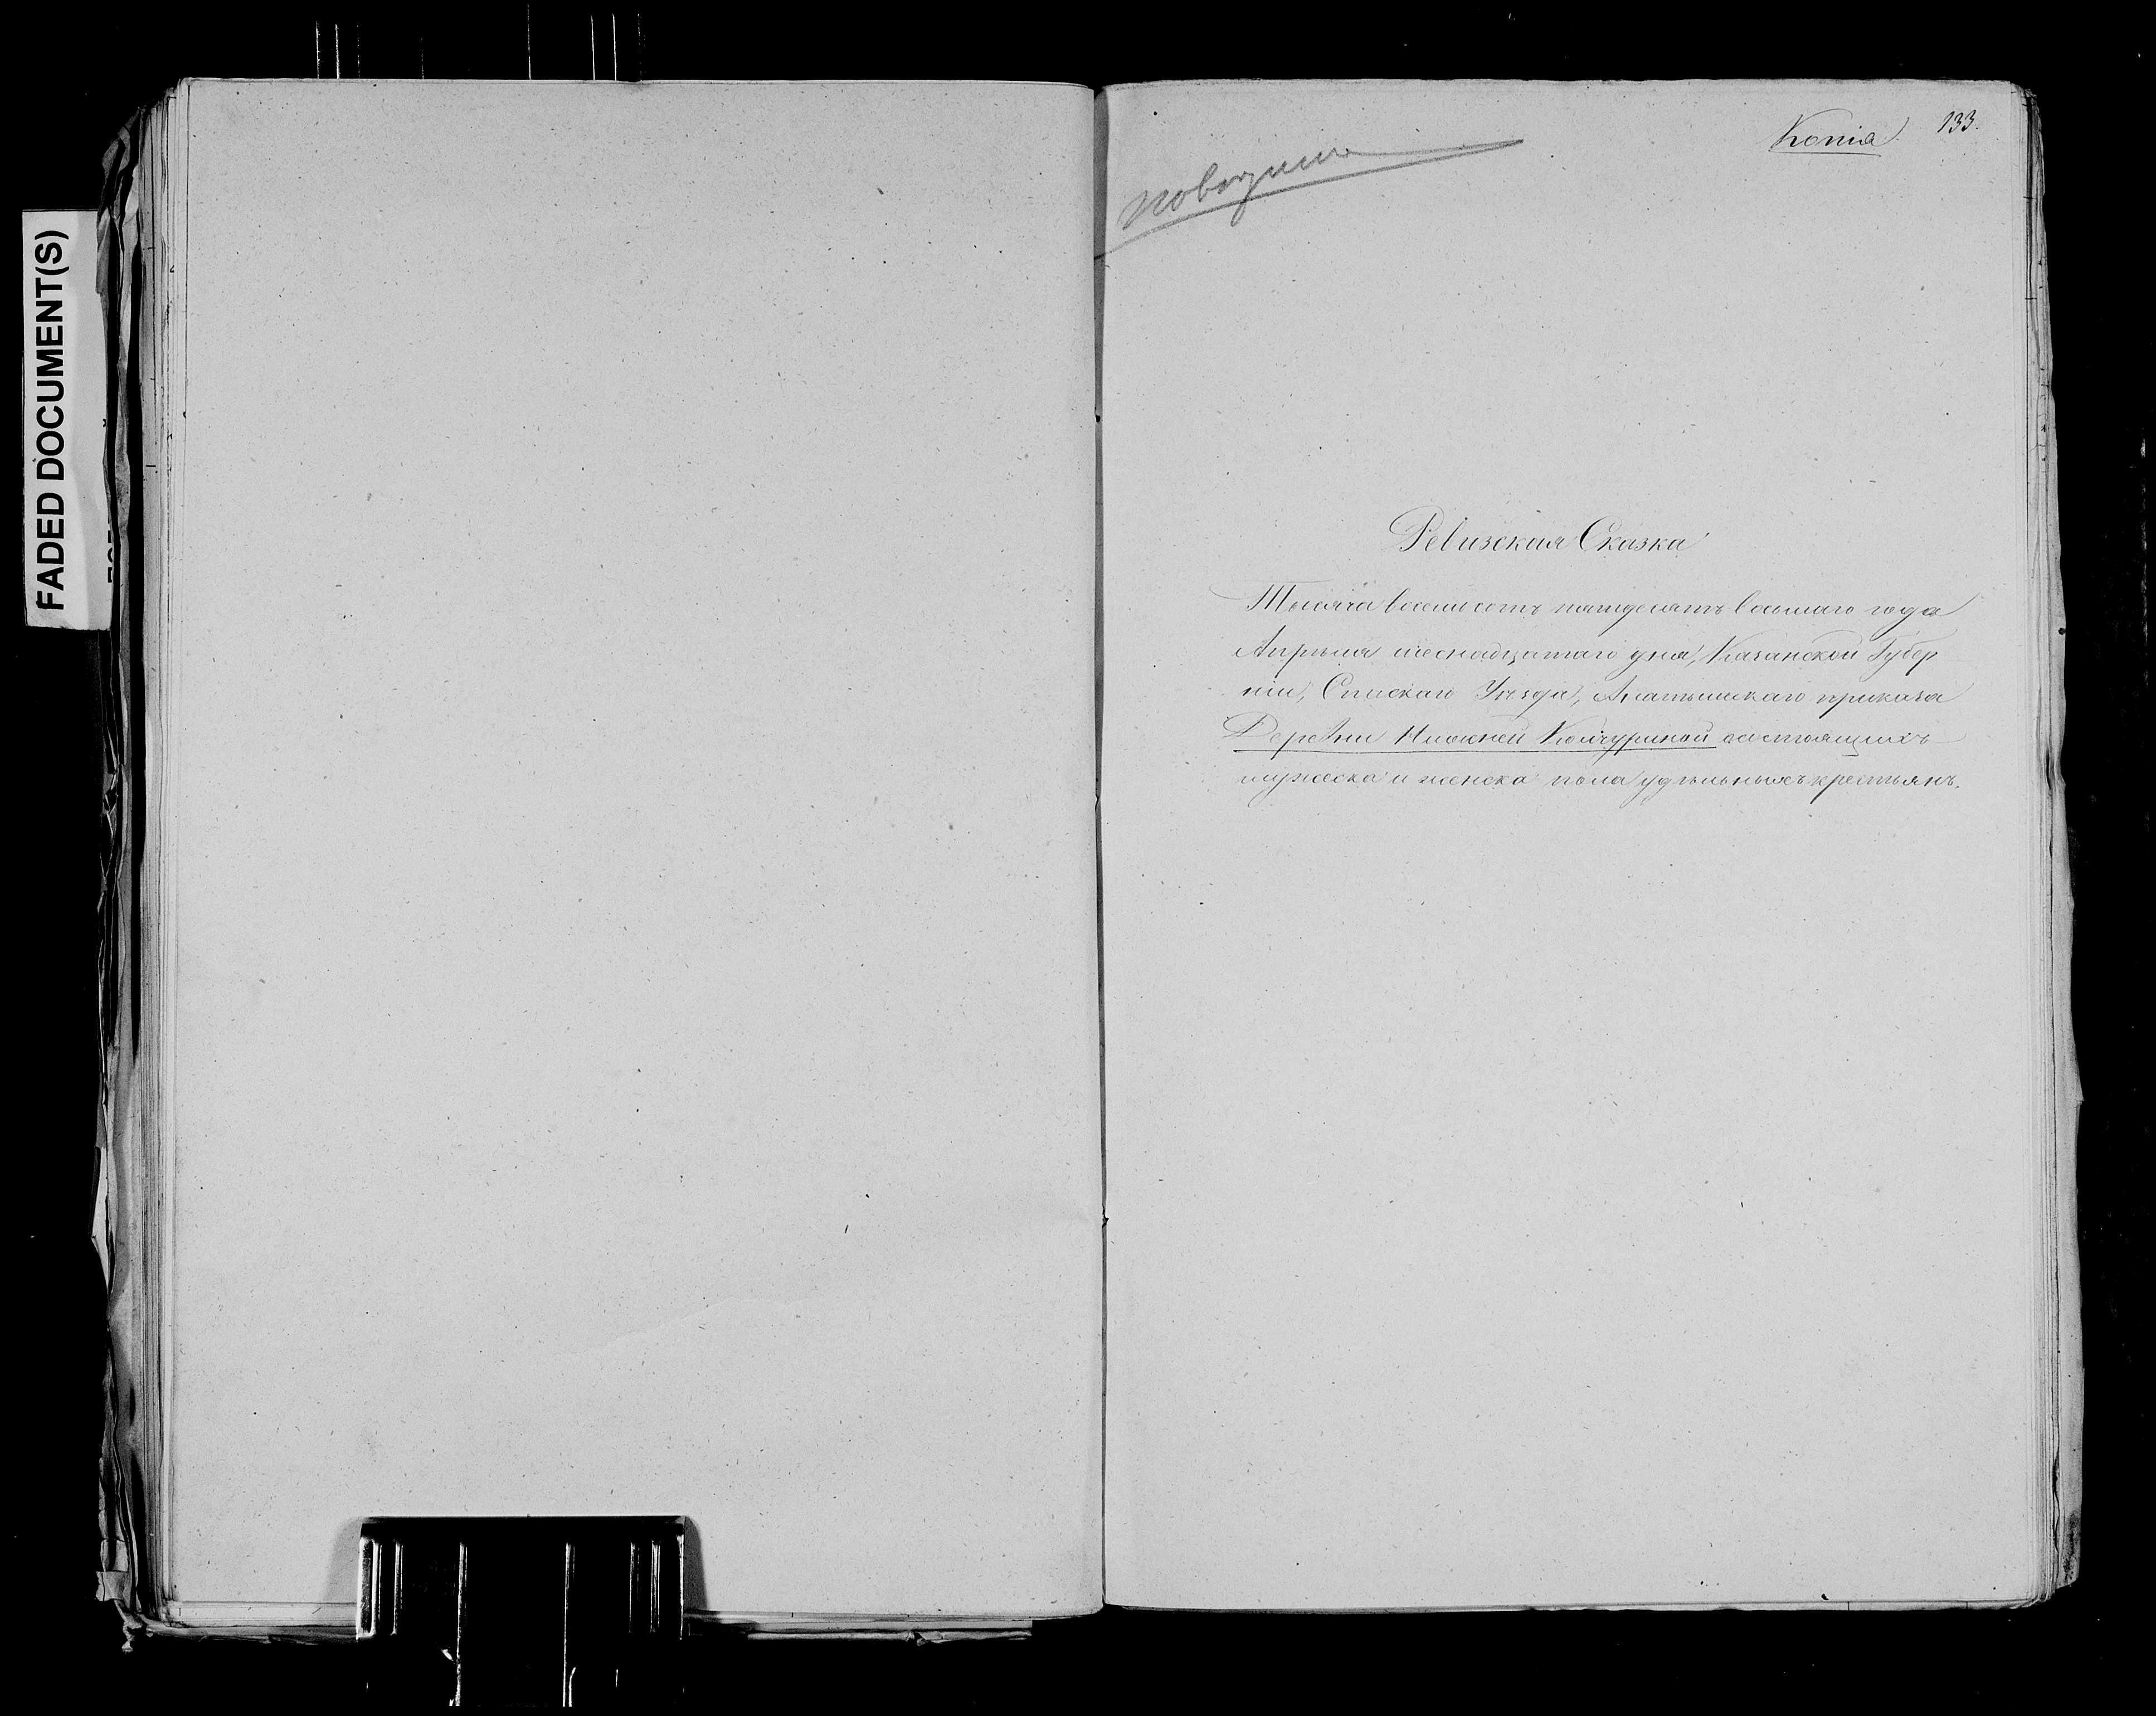 FADED DOCUMENT(S)
Копія
133.
Ревизская Сказка
Тысяча восемьсотъ пятдесятъ восьмаго года
Апрѣля шеснадцатаго дня, Казанской Губер
ніи, Спаскаго Уѣзда, приказа
Деревни Нижней состоящихъ
мужеска и женска пола удѣльныхъ крестьянъ.